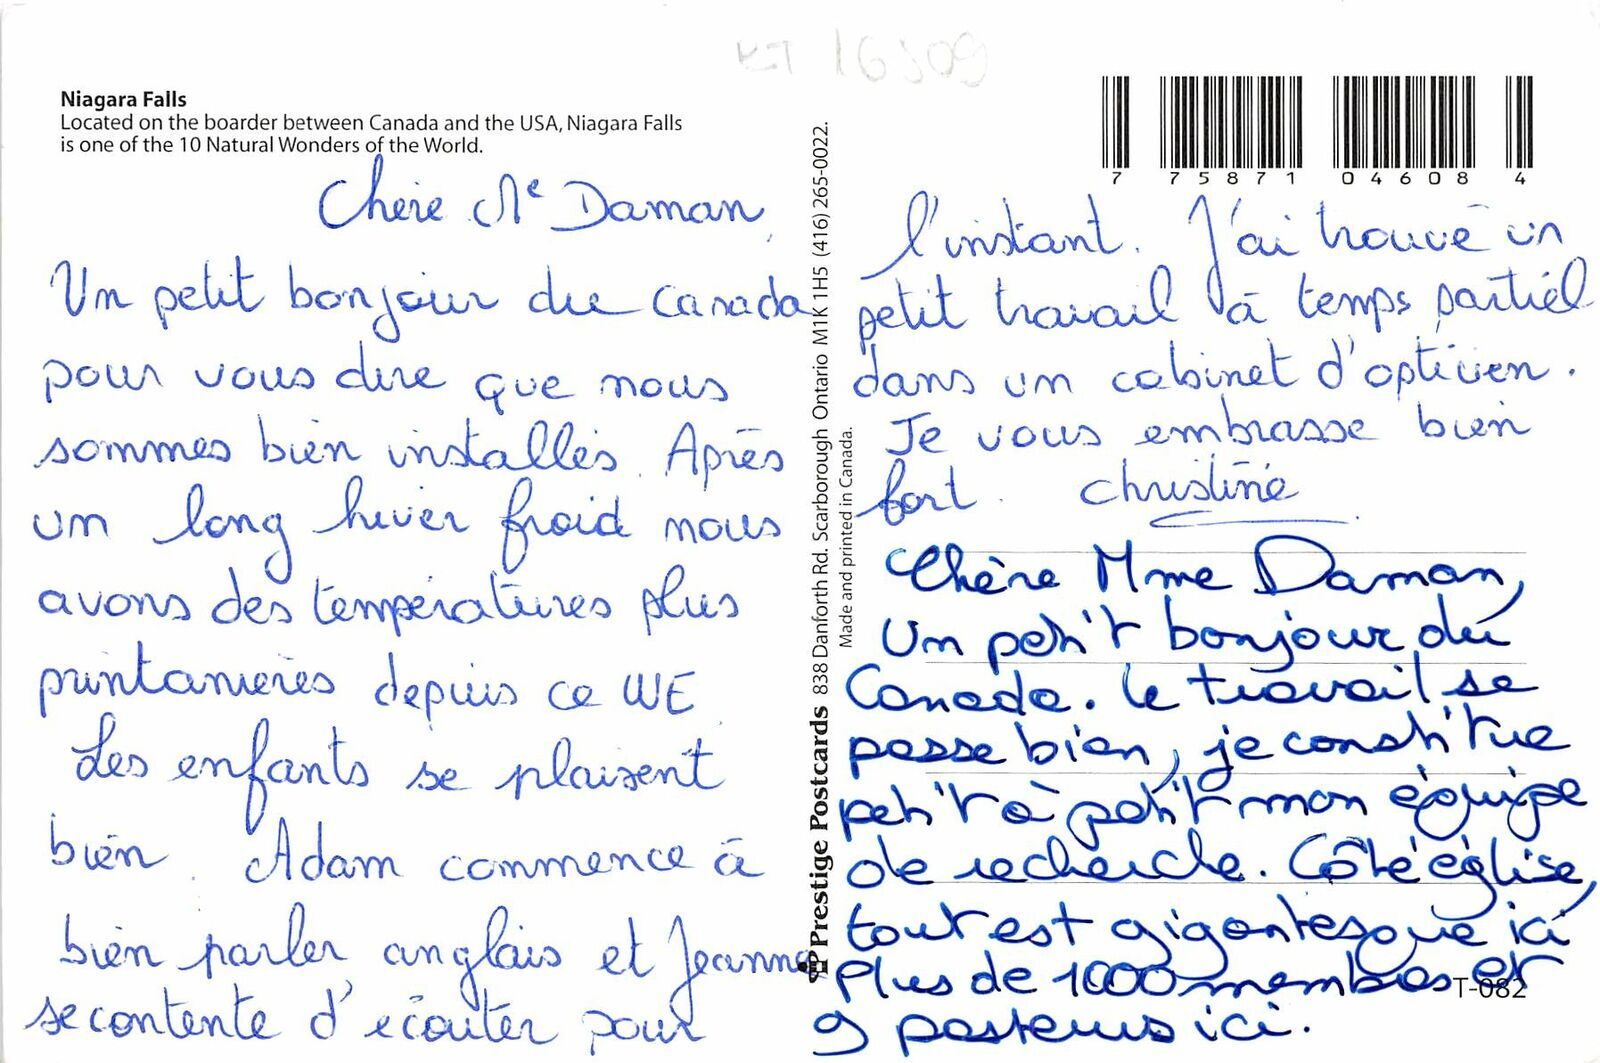 KT 16509
Niagara Falls
Located on the boarder between Canada and the USA, Niagara Falls
is one of the 10 Natural Wonders of the World.
7 75871 04608 4
Chère Me Daman,
Un petit bonjour du Canada
pour vous dire que nous
sommes bien installés. Après
um long hiver froid nous
avons des températures plus
printanières depuis ce WE
Les enfants se plaisent
bien. Adam commence à
bien parler anglais et Jeanne
se contente d'écouter pour
Prestige Postcards 838 Danforth Rd. Scarborough Ontario M1K 1H5 (416) 265-0022.
Made and printed in Canada.
l'instant. J'ai trouvé un
petit travail à temps partiel
dans um cabinet d'opticien.
Je vous embrasse bien
fort. Christine
Chère Mme Daman,
Un petit bonjour du
Canada. Le travail se
passe bien, je constitue
petit à petit mon équipe
de recherche. Côté église,
tout est gigantesque ici
Plus de 1000 membres et
9 pasteurs ici.
T-082